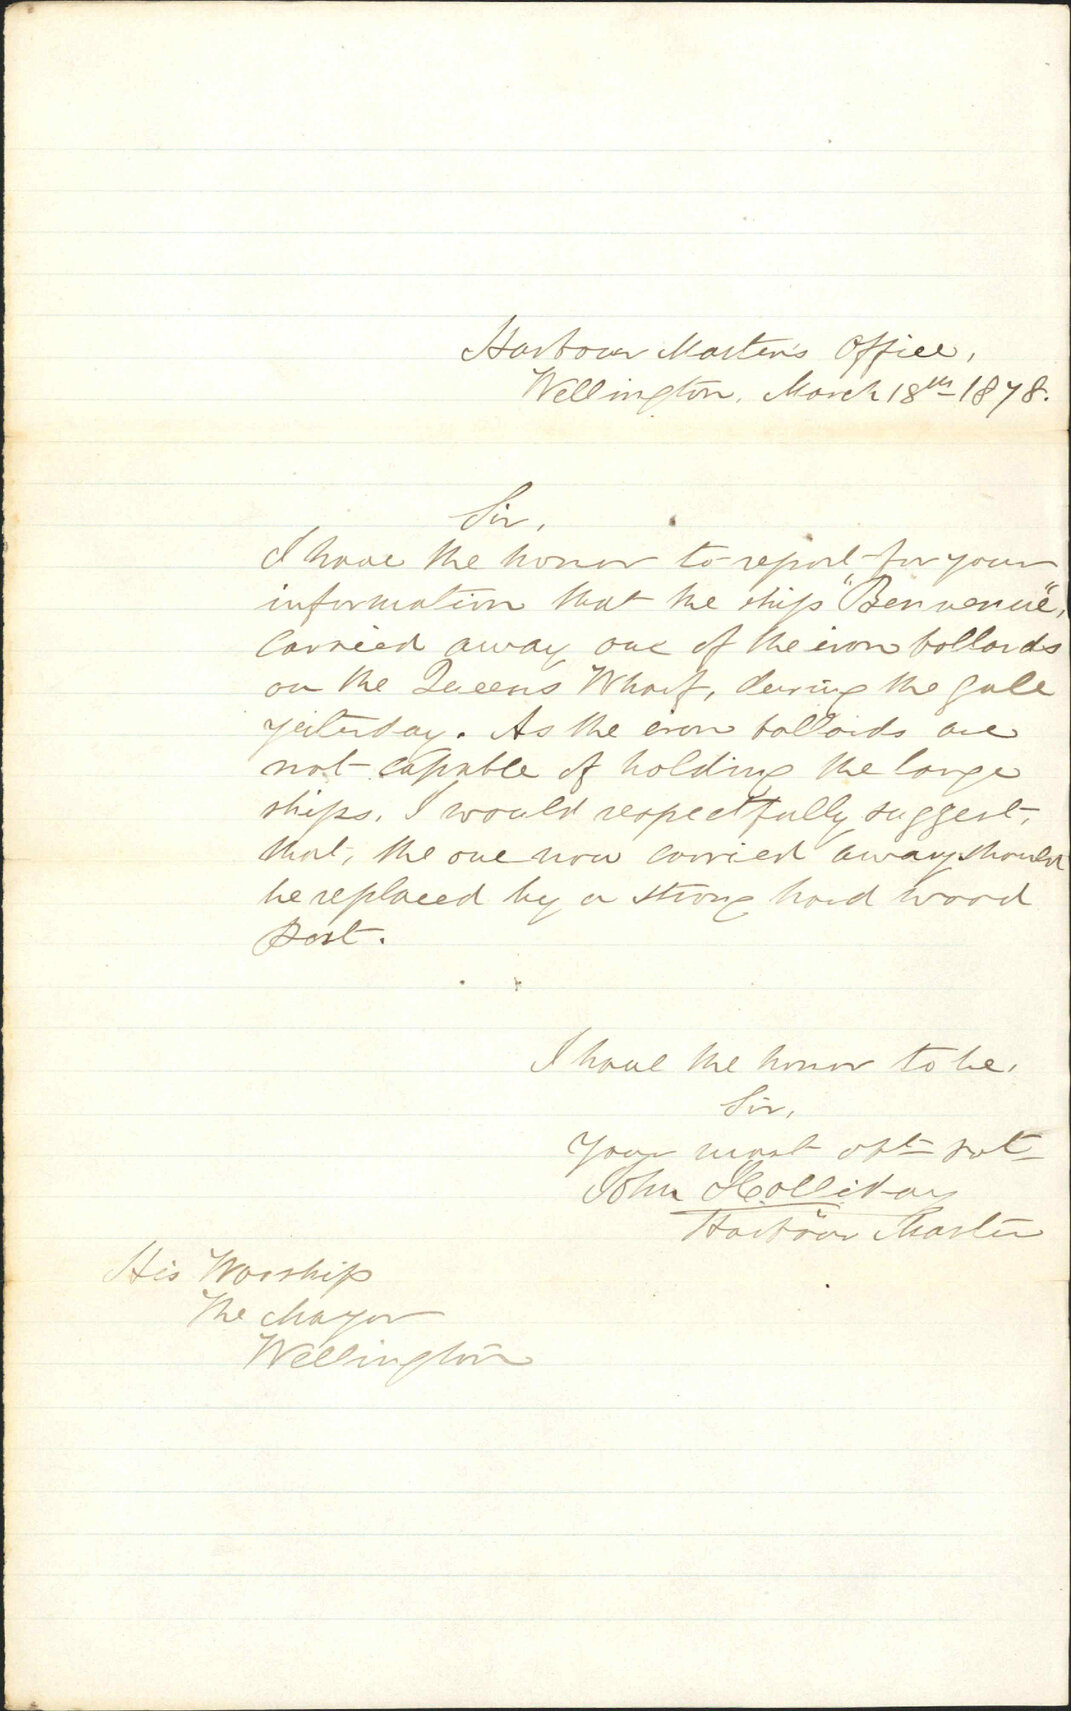 Harbour Master's Office,
Wellington, March 18th 1878.
Sir,
I have the honor to report for your
information that the ship "Benvenue",
carried away one of the iron bollards
on the Queens Wharf, during the gale
yesterday. As the iron bollards are
not capable of holding the large
ships. I would respectfully suggest,
that, the one now carried away should
be replaced by a strong hard wood
Post.
I have the honor to be,
Sir,
Your most obt svt
John Holliday
Harbour Master
His Worship
The Mayor
Wellington